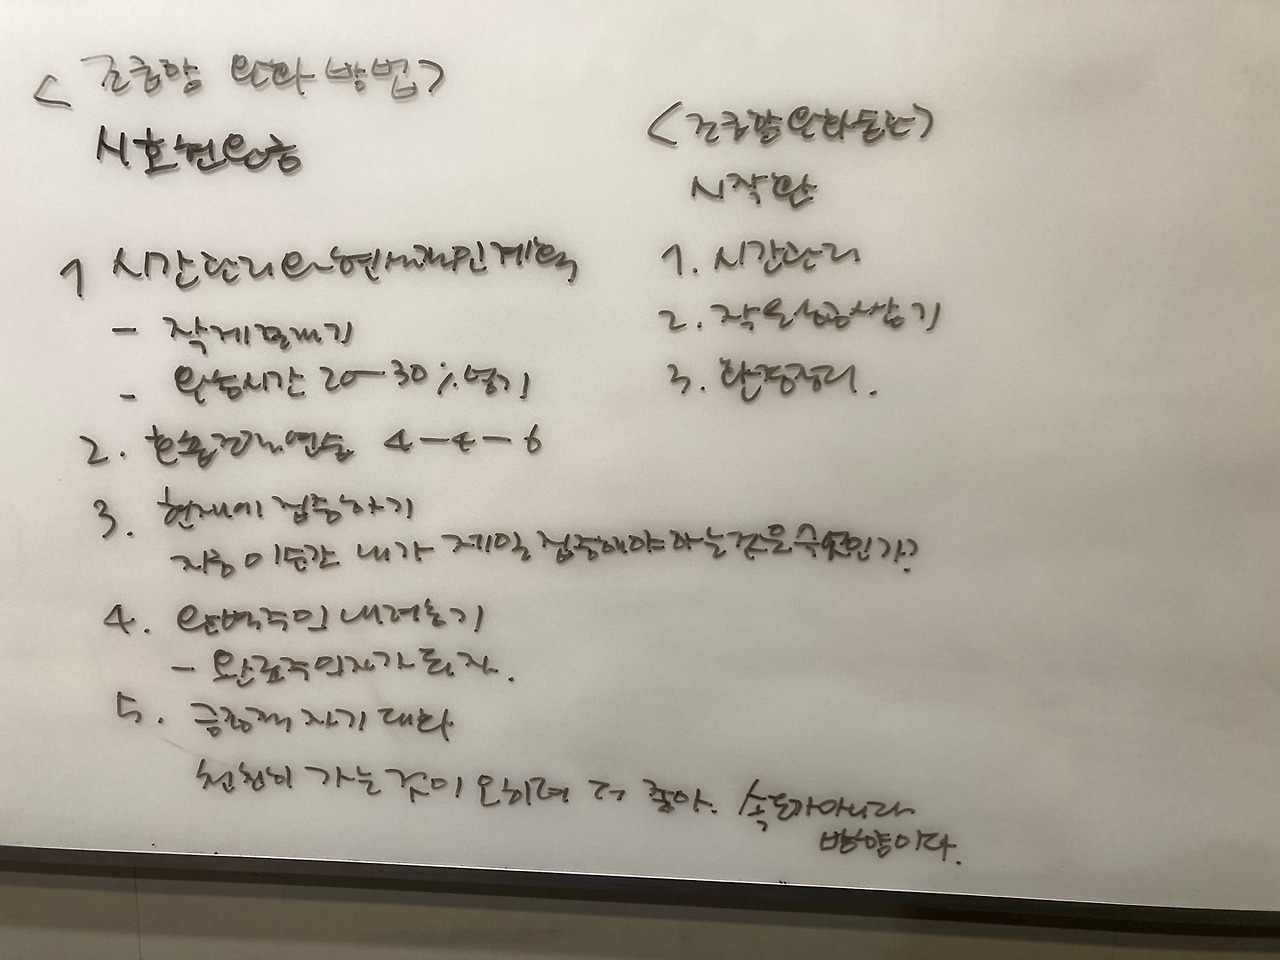 <조급함 완화 방법>
시호현완긍
1 시간관리와 현실적인 계획
- 작게 쪼개기
- 완충시간 20-30% 넣기
2. 호흡 조절 연습 4-4-6
3. 현재에 집중하기
지금 이순간 내가 제일 집중해야 하는것은 무엇인가?
4. 완벽주의 내려놓기
- 완료주의자가 되자.
5. 긍정적 자기 대화
천천히 가는 것이 오히려 더 좋아. 속도가 아니라
방향이다.
<조급함 완화 습관>
시작환
1. 시간관리
2. 작은 성공 쌓기
3. 환경정리.